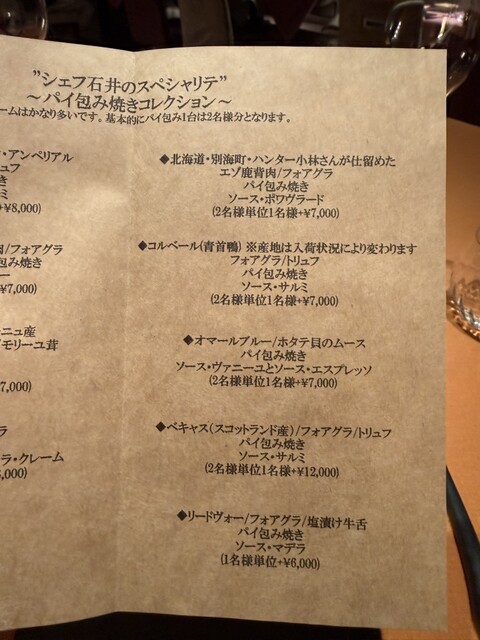 ”シェフ石井のスペシャリテ”
～パイ包み焼きコレクション～
ームはかなり多いです。基本的にパイ包み1台は2名様分となります。
・アンペリアル
ュフ
き
ミ
+¥8,000)
/フォアグラ
包み焼き
ー
¥7,000)
ーニュ産
モリーユ茸
7,000)
ラ
ラ・クレーム
,000)
◆北海道・別海町・ハンター小林さんが仕留めた
エゾ鹿背肉/フォアグラ
パイ包み焼き
ソース・ポワヴラード
(2名様単位1名様+¥7,000)
◆コルベール(青首鴨) ※産地は入荷状況により変わります
フォアグラ/トリュフ
パイ包み焼き
ソース・サルミ
(2名様単位1名様+¥7,000)
◆オマールブルー/ホタテ貝のムース
パイ包み焼き
ソース・ヴァニーユとソース・エスプレッソ
(2名様単位1名様+¥7,000)
◆ベキャス(スコットランド産)/フォアグラ/トリュフ
パイ包み焼き
ソース・サルミ
(2名様単位1名様+¥12,000)
◆リードヴォー/フォアグラ/塩漬け牛舌
パイ包み焼き
ソース・マデラ
(1名様単位+¥6,000)